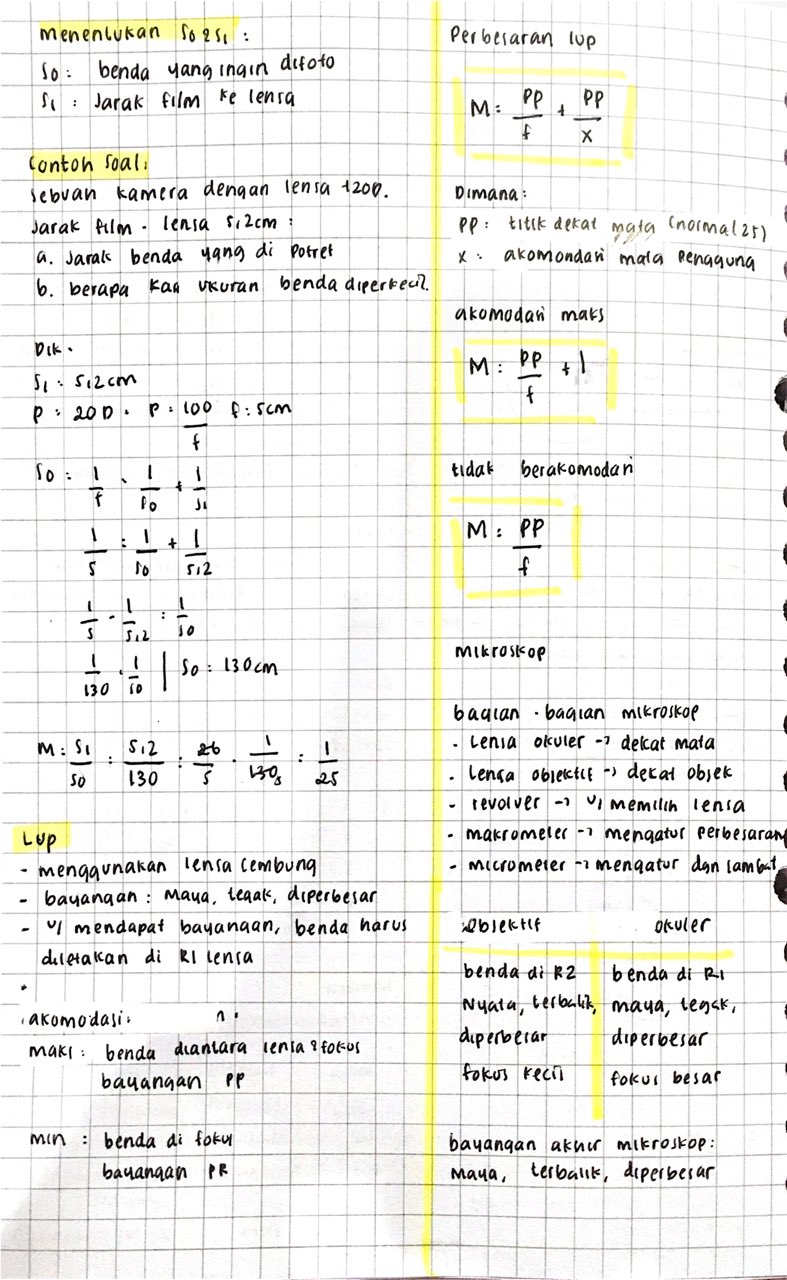 menentukan So & Si :
So : benda yang ingin difoto
Si : Jarak film ke lensa
Contoh Soal :
Sebuah kamera dengan lensa +20D.
Jarak film - lensa 5,2cm :
a. Jarak benda yang di Potret
b. berapa kali ukuran benda diperkecil.
Dik.
Si : 5,2cm
P : 20D . P : 100/f f : 5cm
So : 1/f . 1/So + 1/Si
1/5 : 1/So + 1/5,2
1/5 - 1/5,2 : 1/So
1/130 . 1/So | So : 130cm
M : Si/So : 5,2/130 : 26/5 . 1/130 5 : 1/25
Lup
- menggunakan lensa cembung
- bayangan : Maya, tegak, diperbesar
- u/ mendapat bayangan, benda harus
diletakan di R1 lensa
akomodasi :
maks : benda diantara lensa & fokus
bayangan PP
min : benda di fokus
bayangan PR
Perbesaran lup
M : PP/f + PP/x
Dimana :
PP : titik dekat mata (normal 25)
x : akomondasi mata Pengguna
akomodasi maks
M : PP/f + 1
tidak berakomodasi
M : PP/f
mikroskop
bagian - bagian mikroskop
- lensa okuler -> dekat mata
- lensa objektif -> dekat objek
- revolver -> u/ memilih lensa
- makrometer -> mengatur perbesaran
- micrometer -> mengatur dgn lambat
Objektif okuler
benda di R2 benda di R1
Nyata, terbalik, maya, tegak,
diperbesar diperbesar
fokus kecil fokus besar
bayangan akhir mikroskop :
Maya, terbalik, diperbesar